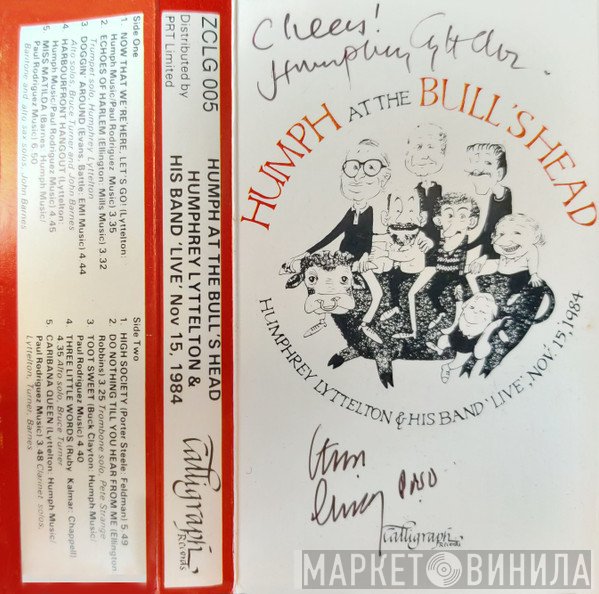 Cheers!
Humphrey Lyttelton.
HUMPH AT THE BULL'S HEAD
HUMPHREY LYTTELTON & HIS BAND 'LIVE'. NOV. 15, 1984
Calligraph
Records
ZCLG 005
Distributed by
PRT Limited
HUMPH AT THE BULL'S HEAD
HUMPHREY LYTTELTON &
HIS BAND 'LIVE' Nov 15, 1984
Calligraph
Records
Side One
1. NOW THAT WE'RE HERE, LET'S GO! (Lyttelton:
Humph Music/Paul Rodriguez Music) 7 35
2 ECHOES OF HARLEM (Ellington: Mills Music) 3 32
Trumpet solo, Humphrey Lyttelton
3 DOGGIN' AROUND (Evans, Battle: EMI Music) 4 44
Alto solos, Bruce Turner and John Barnes
4 HARBOURFRONT HANGOUT (Lyttelton:
Humph Music/Paul Rodriguez Music) 4 45
5 MISS MATILDA (Barnes: Humph Music/
Paul Rodriguez Music) 6 50
Baritone and alto sax solos, John Barnes
Side Two
1 HIGH SOCIETY (Porter Steele: Feldman) 5 49
2 DO NOTHING TILL YOU HEAR FROM ME (Ellington:
Robbins) 3 25 Trombone solo, Pete Strange
3 TOOT SWEET (Buck Clayton: Humph Music/
Paul Rodriguez Music) 4 40
4 THREE LITTLE WORDS (Ruby, Kalmar: Chappell)
4 35 Alto solo, Bruce Turner
5 CARIBANA QUEEN (Lyttelton: Humph Music/
Paul Rodriguez Music) 3 48 Clarinet solos,
Lyttelton, Turner, Barnes
МАРКЕТ ВИНИЛА